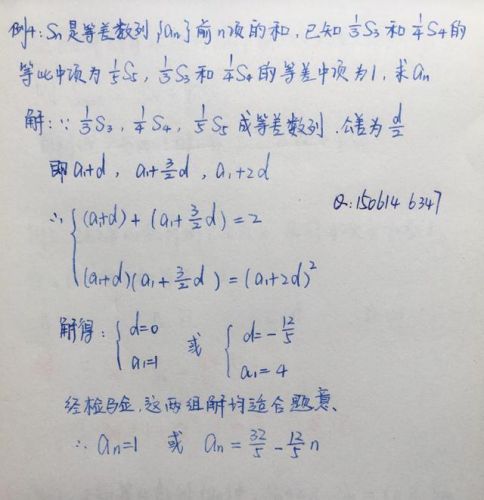 例4:Sn是等差数列{an}前n项的和,已知 1/3 S3 和 1/4 S4 的
等比中项为 1/5 S5, 1/3 S3 和 1/4 S4 的等差中项为1,求an
解:∵ 1/3 S3, 1/4 S4, 1/5 S5 成等差数列.公差为 d/2
即 a1+d, a1+3/2 d, a1+2d
Q:150614 6347
∴ { (a1+d)+(a1+3/2 d)=2
(a1+d)(a1+3/2 d)=(a1+2d)²
解得: { d=0 或 { d=-12/5
a1=1 a1=4
经检验,这两组解均适合题意、
∴ an=1 或 an=32/5-12/5 n